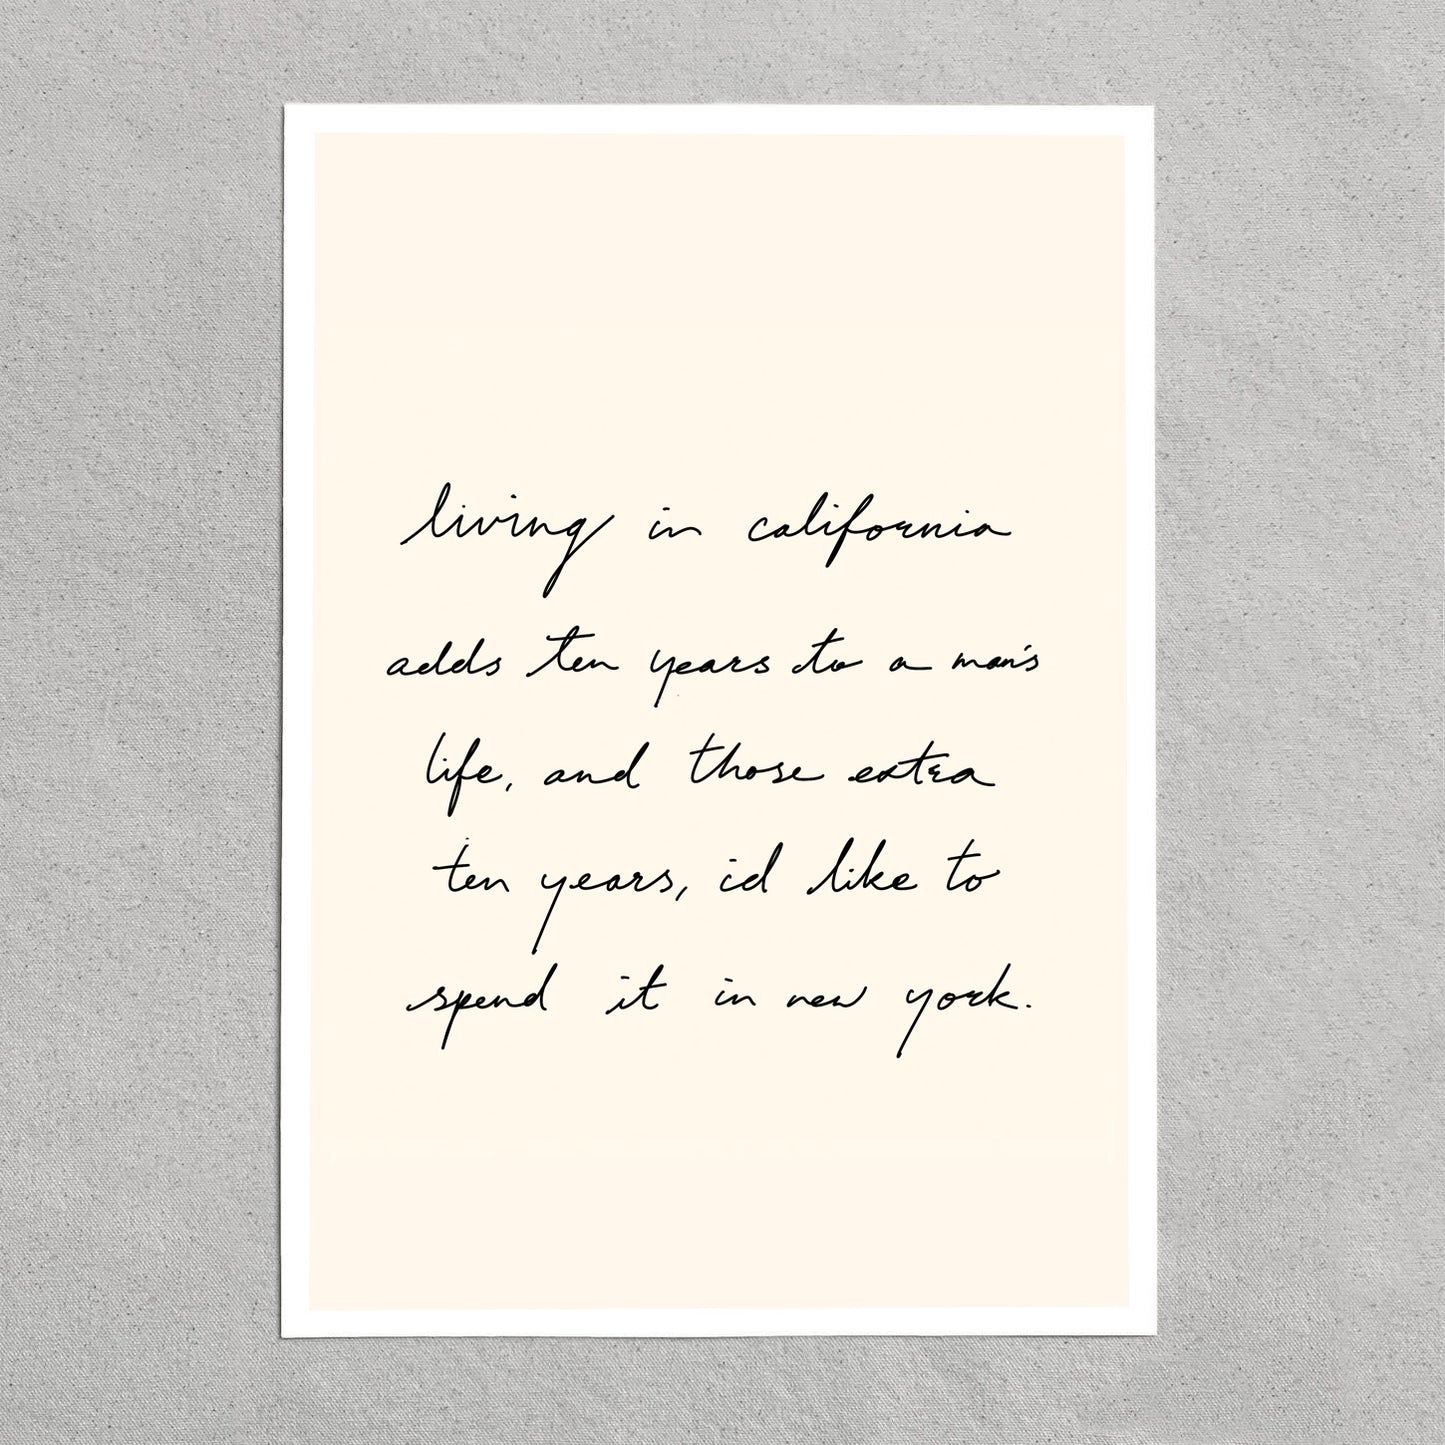 living in california
adds ten years to a man's
life, and those extra
ten years, id like to
spend it in new york.